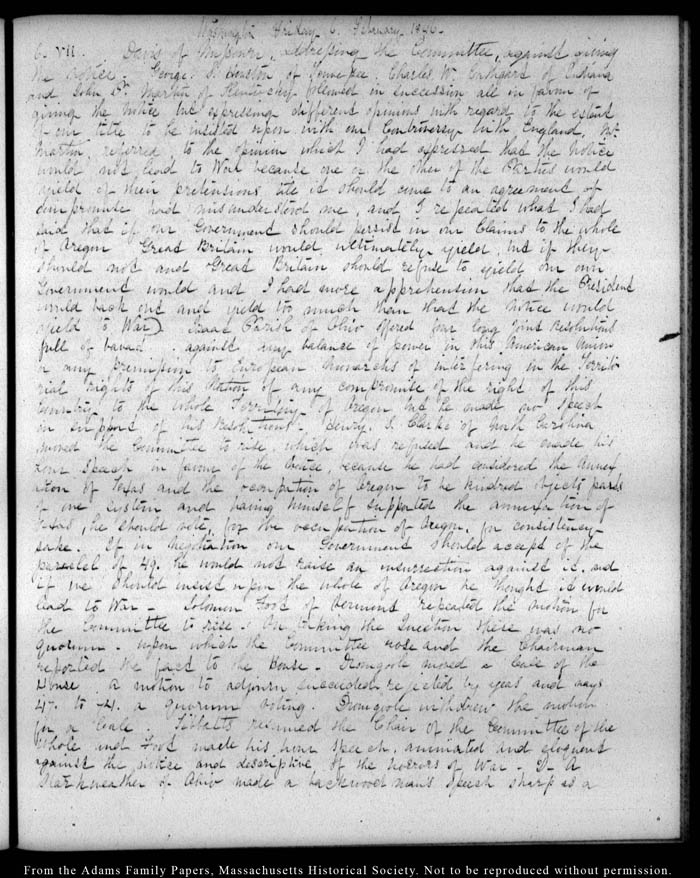 Washington Friday 6. February 1846.
6. VII. Davis of addressing the Committee, against giving
the Notice. George S. Houston of Charles W. Cathcart of Indiana
and John P. Martin of Kentucky followed in succession all in favour of
giving the Notice but expressing different opinions with regard to the extent
of our title to be insisted upon with our Controversy with England, Mr
Martin, referred to the opinion which I had expressed that the Notice
would not lead to War because one or the other of the Parties would
yield of their pretensions it should come to an agreement of
compromise had misunderstood me, and I repeated what I had
said that if our Government should persist in our Claims to the whole
of Oregon Great Britain would ultimately yield, but if they
should not and Great Britain should refuse to yield our own
Government would and I had more apprehension that the President
would back out and yield too much than that the Notice would
yield to War) Isaac Parish of Ohio offered four long joint resolutions
full of against any balance of power in this American Union
or any to European Monarchs of interfering in the Territo
rial rights of this Nation of any compromise of the right of this
Country to the whole Territory of Oregon but he made no speech
in support of his resolutions. Henry S. Clarke of North Carolina
moved the Committee to rise, which was refused and he made his
hour speech in favour of the Notice, because he had considered the annex
ation of Texas and the occupation of Oregon to be kindred objects parts
of one system and having himself supported the annexation of
Texas, he should vote, for the occupation of Oregon, for consistency
sake. If in Negotiation our Government should accept of the
parallel of 49. he would not raise an insurrection against it. and
if we should insist upon the whole of Oregon he thought it would
lead to War – Solomon Foot of Vermont repeated the motion for
the Committee to rise. On taking the Question there was no
quorum. upon which the Committee rose and the Chairman
reported the fact to the House. Dromgoole moved a Call of the
House a motion to adjourn succeeded rejected by yeas and nays
47. to a quorum voting. Dromgoole withdrew the motion
for a Call. Tibbatts resumed the Chair of the Committee of the
Whole and Foot made his hour speech, animated and eloquent
against the notice and descriptive of the horrors of War – D. A
Starkweather of Ohio made a backwoodman's speech sharp as a
From the Adams Family Papers, Massachusetts Historical Society. Not to be reproduced without permission.